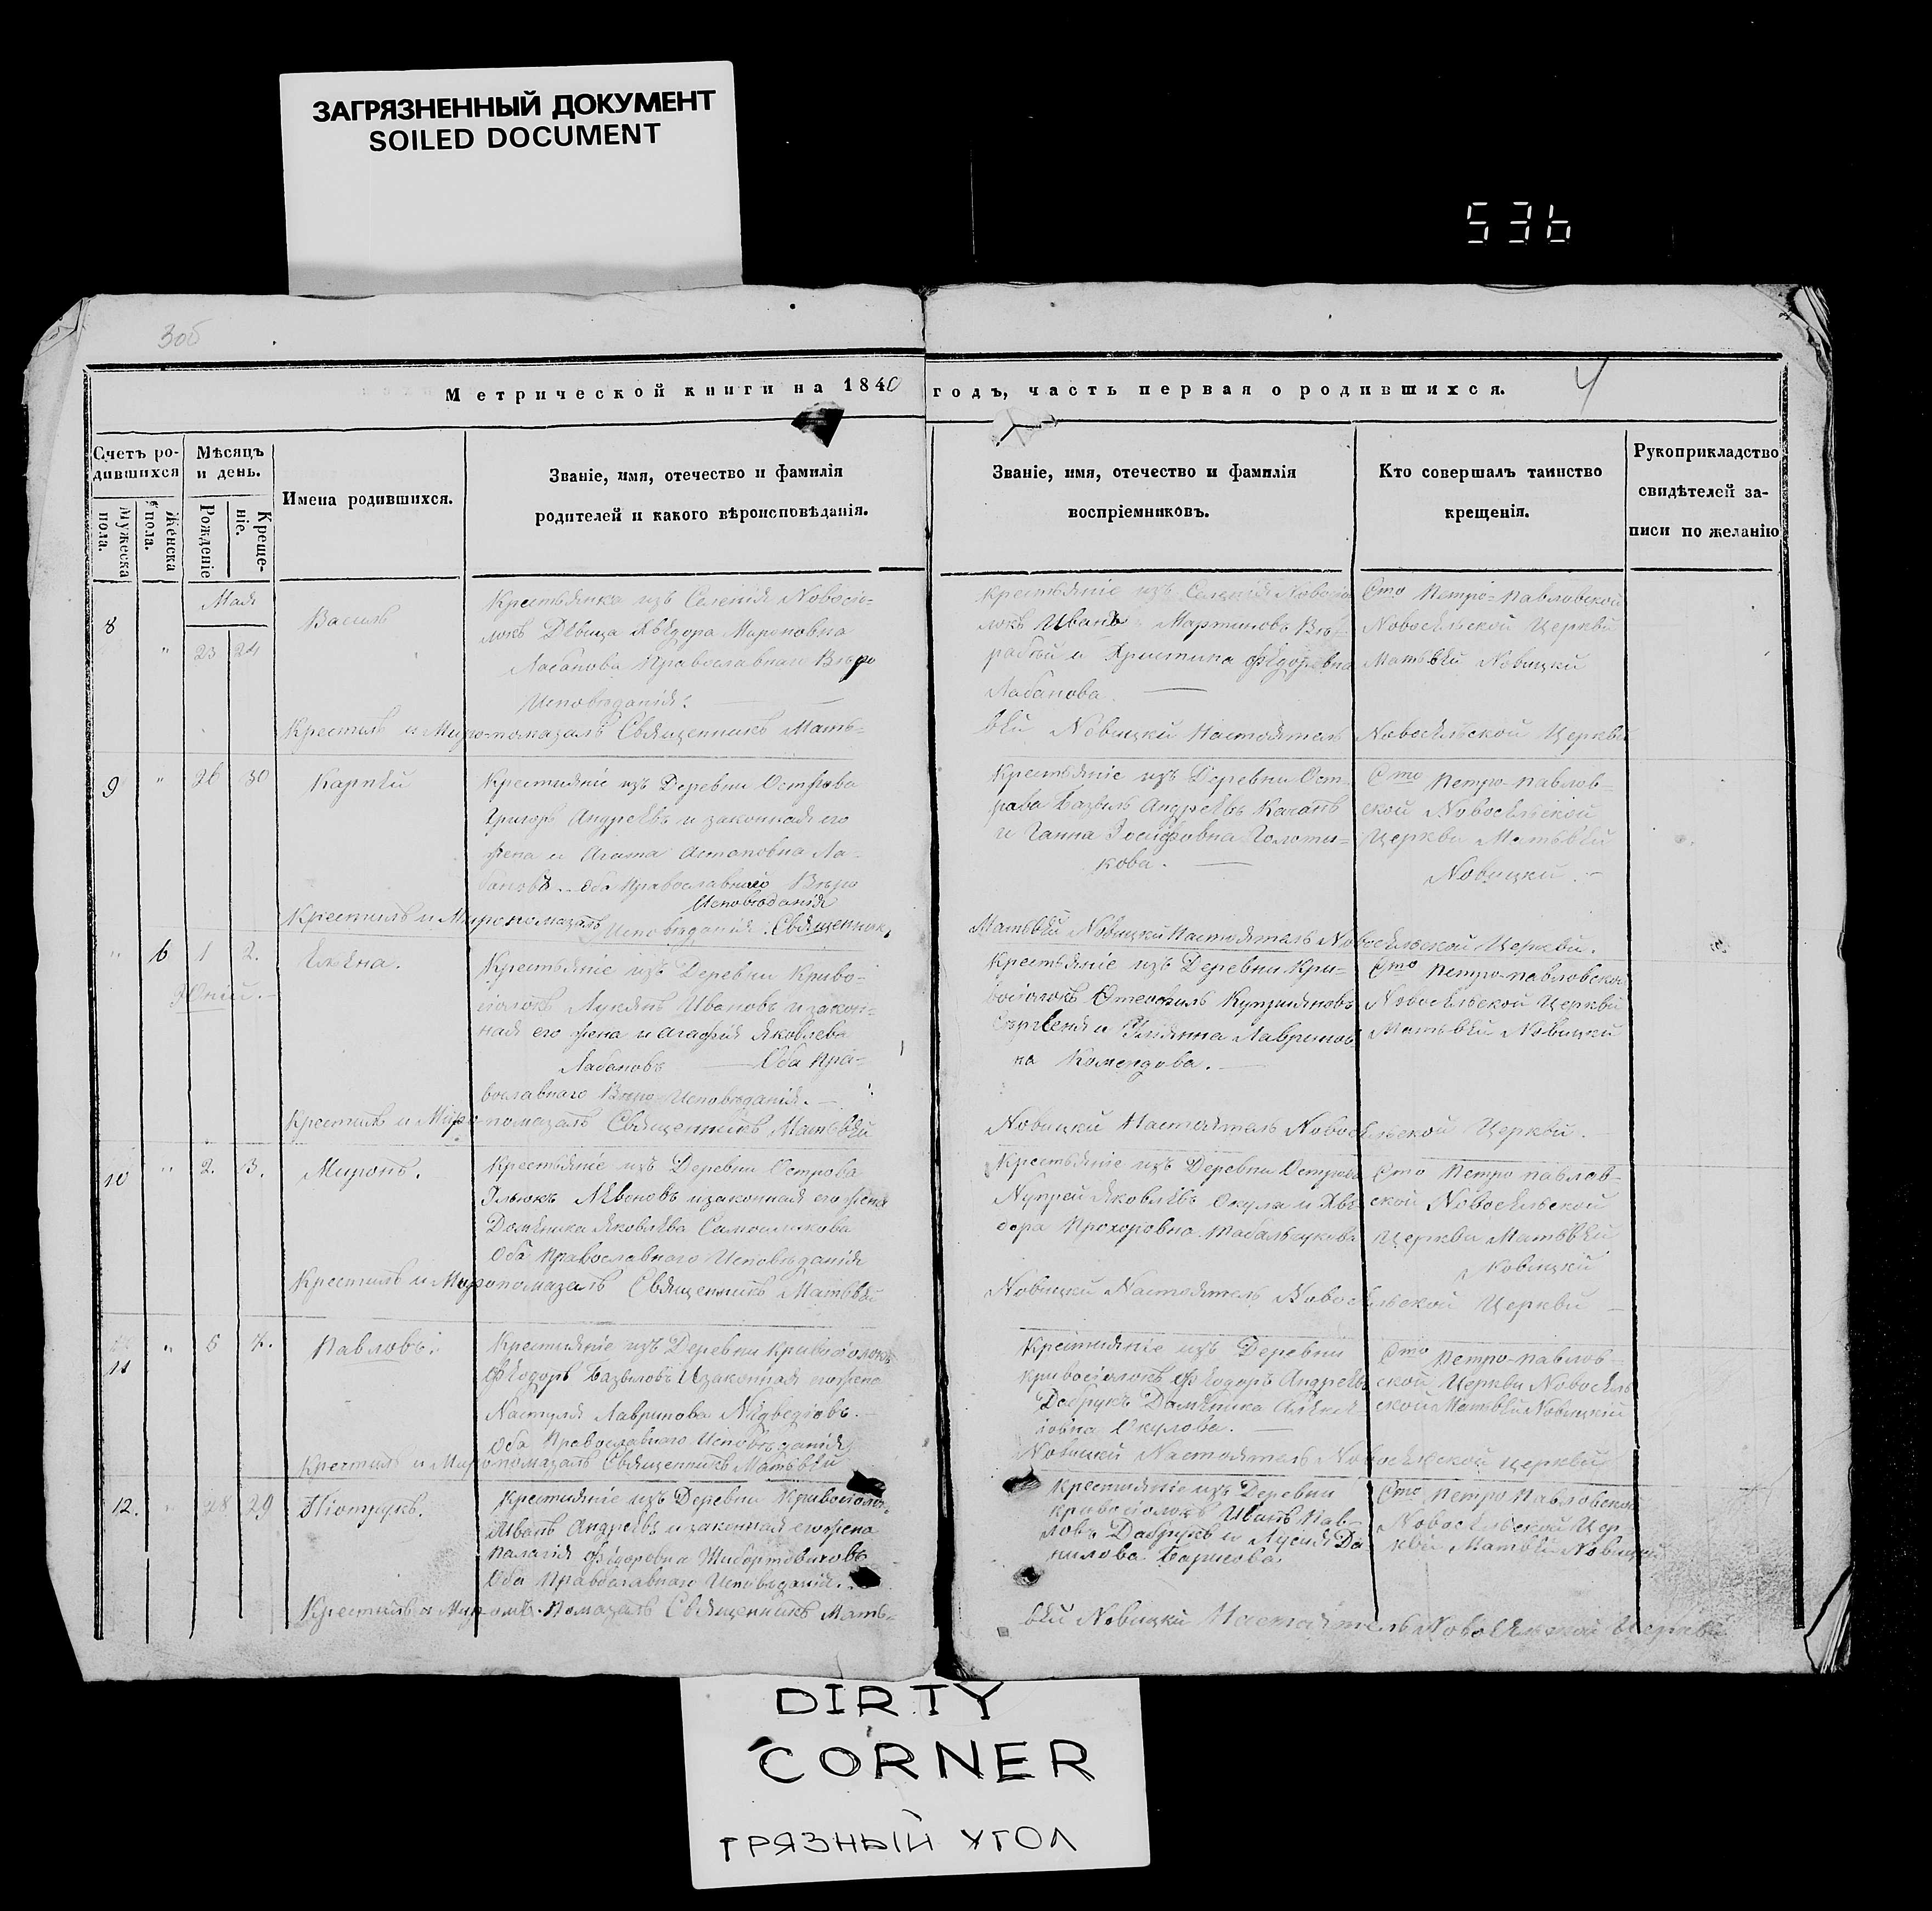 ЗАГРЯЗНЕННЫЙ ДОКУМЕНТ
SOILED DOCUMENT
536
3об
4
Метрической книги на 1840 годъ, часть первая о родившихся.
Счетъ родившихся
Мужеска пола.
Женска пола.
Мѣсяцъ и день.
Рожденіе
Крещеніе.
Имена родившихся.
Званіе, имя, отечество и фамилія
родителей и какого вѣроисповѣданія.
Званіе, имя, отечество и фамилія
воспріемниковъ.
Кто совершалъ таинство
крещенія.
Рукоприкладство
свидѣтелей за-
писи по желанію
Мая
8 " 23 24
Василь
Крестьянка изъ Селенія Новосіо-
локъ Дѣвица Ѳѣодора Мироновна
Лабанова Православнаго Вѣро
Исповѣданія.
Крестьяніе изъ Селенія Новосіо
локъ Иванъ Мартиновъ
и Христина Фѣдоровна
Лабанова.
Сто Петро-Павловской
Новосѣльской Церкви
Матвѣй Новицкій
Крестилъ и Миро-помазалъ Священникъ Матъ-
вѣй Новицкій Настоятель Новосѣльской Церкви
9 " 26 30
Карпѣй
Крестіяніе изъ Деревни Острова
Григоръ Андрѣевъ и законная его
жена и Агата Астаповна Ла-
бановы. Оба Православнаго Вѣро
Исповѣданія
Крестьяніе изъ Деревни Ост
рова Базиль Андрѣевъ Каханъ
и Ганна Іосифовна Голоти-
кова.
Сто Петро-Павлов-
ской Новосѣльской
Церкви Матьвѣй
Новицкій
Крестилъ и Миропомазалъ Исповѣданія Священникъ
Матьвѣй Новицкій Настоятель Новосѣльской Церкви.
" 6 1 2.
Юній.
Елѣна.
Крестьяніе изъ Деревни Криво-
сіолокъ Лукянъ Ивановъ и закон-
ная его жена и Агафія Яковлева
Лабановъ Оба Пра-
вославнаго Вѣро-Исповѣданія.
Крестьяніе изъ Деревни Кри-
восіолокъ
и Ульянна Лавринов
на Комендова.
Сто Петро-Павловской
Новосѣльской Церкви
Матьвѣй Новицкій
Крестилъ и Миро-помазалъ Священникъ Матьвѣй
Новицкій Настоятель Новосѣльской Церкви.
10 " 2. 3.
Миронъ.
Крестьяніе изъ Деревни Острова
Ильюкъ Лѣвоновъ и законная его жена
Домѣника Яковлѣва
Оба Православнаго Исповѣданія
Крестьяніе изъ Деревни Острова
Купрей Яковлѣвъ Окула и Ѳѣ
одора Прохоровна
Сто Петро Павлов-
ской Новосѣльской
Церкви Матьвѣй
Новицкій
Крестилъ и Миропомазалъ Священникъ Матьвѣй
Новицкій Настоятель Новосѣльской Церкви
11 " 5 7.
Павловъ.
Крестіяніе изъ Деревни Кривосіолокъ
Фѣодоръ Базыловъ И законная его жена
Настуля Лавринова Мѣдведіовъ.
Оба Православнаго Исповѣданія
Крестіяніе изъ Деревни
Кривосіолокъ Фѣодоръ Андрѣевъ
Добрукъ Домѣника
Окулова.
Сто Петро-Павлов-
ской Церкви Новосѣль
ской Матьвѣй Новицкій
Крестилъ и Миропомазалъ Священникъ Матьвѣй
Новицкій Настоятель Новосѣльской Церкви
12. " 28 29
Піотрукъ.
Крестіяніе изъ Деревни Кривосіоло
Иванъ Андрѣевъ и законная его жена
Палагія Фѣдоровна
Оба Православнаго Исповѣданія.
Крестіяніе изъ Деревни
Кривосіолокъ Иванъ Пав-
ловъ Добрукъ и Луція Да
нилова Барисова
Сто Петро Павловской
Новосѣльской Цер-
кви Матвѣй Новицкій
Крестилъ и Миромъ Помазалъ Священникъ Матъ-
вѣй Новицкій Настоятель Новосѣльской Церкви
DIRTY
CORNER
ГРЯЗНЫЙ УГОЛ